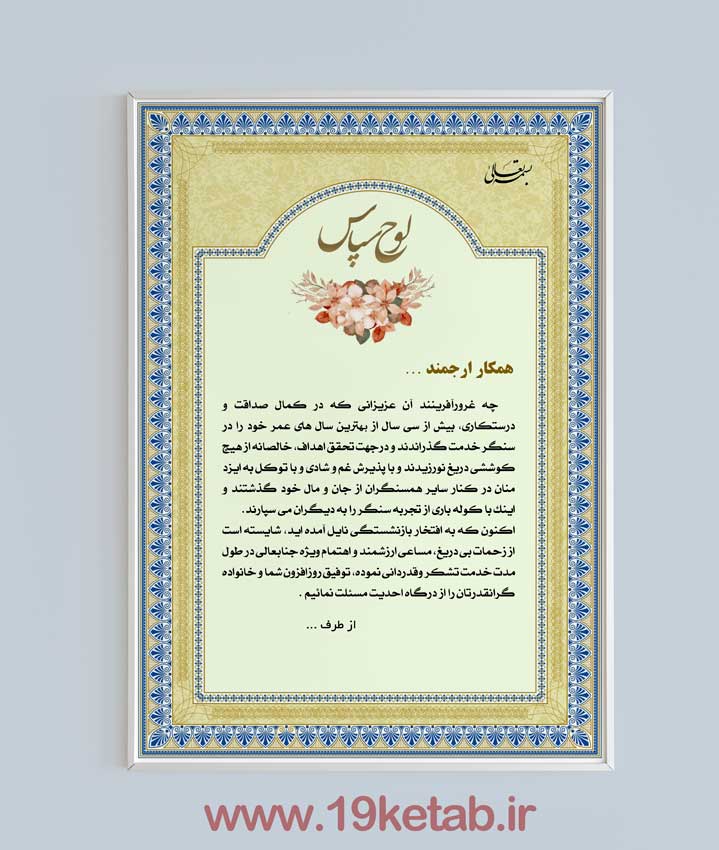 بسمه تعالی
لوح سپاس
همکار ارجمند ...
چه غرورآفرینند آن عزیزانی که در کمال صداقت و
درستکاری، بیش از سی سال از بهترین سال های عمر خود را در
سنگر خدمت گذراندند و درجهت تحقق اهداف، خالصانه از هیچ
کوششی دریغ نورزیدند و با پذیرش غم و شادی و با توکل به ایزد
منان در کنار سایر همسنگران از جان و مال خود گذشتند و
اینك با کوله باری از تجربه سنگر را به دیگران می سپارند.
اکنون که به افتخار بازنشستگی نایل آمده اید، شایسته است
از زحمات بی دریغ، مساعی ارزشمند و اهتمام ویژه جنابعالی در طول
مدت خدمت تشکر وقدردانی نموده، توفیق روزافزون شما و خانواده
گرانقدرتان را از درگاه احدیت مسئلت نمائیم .
از طرف ...
www.19ketab.ir